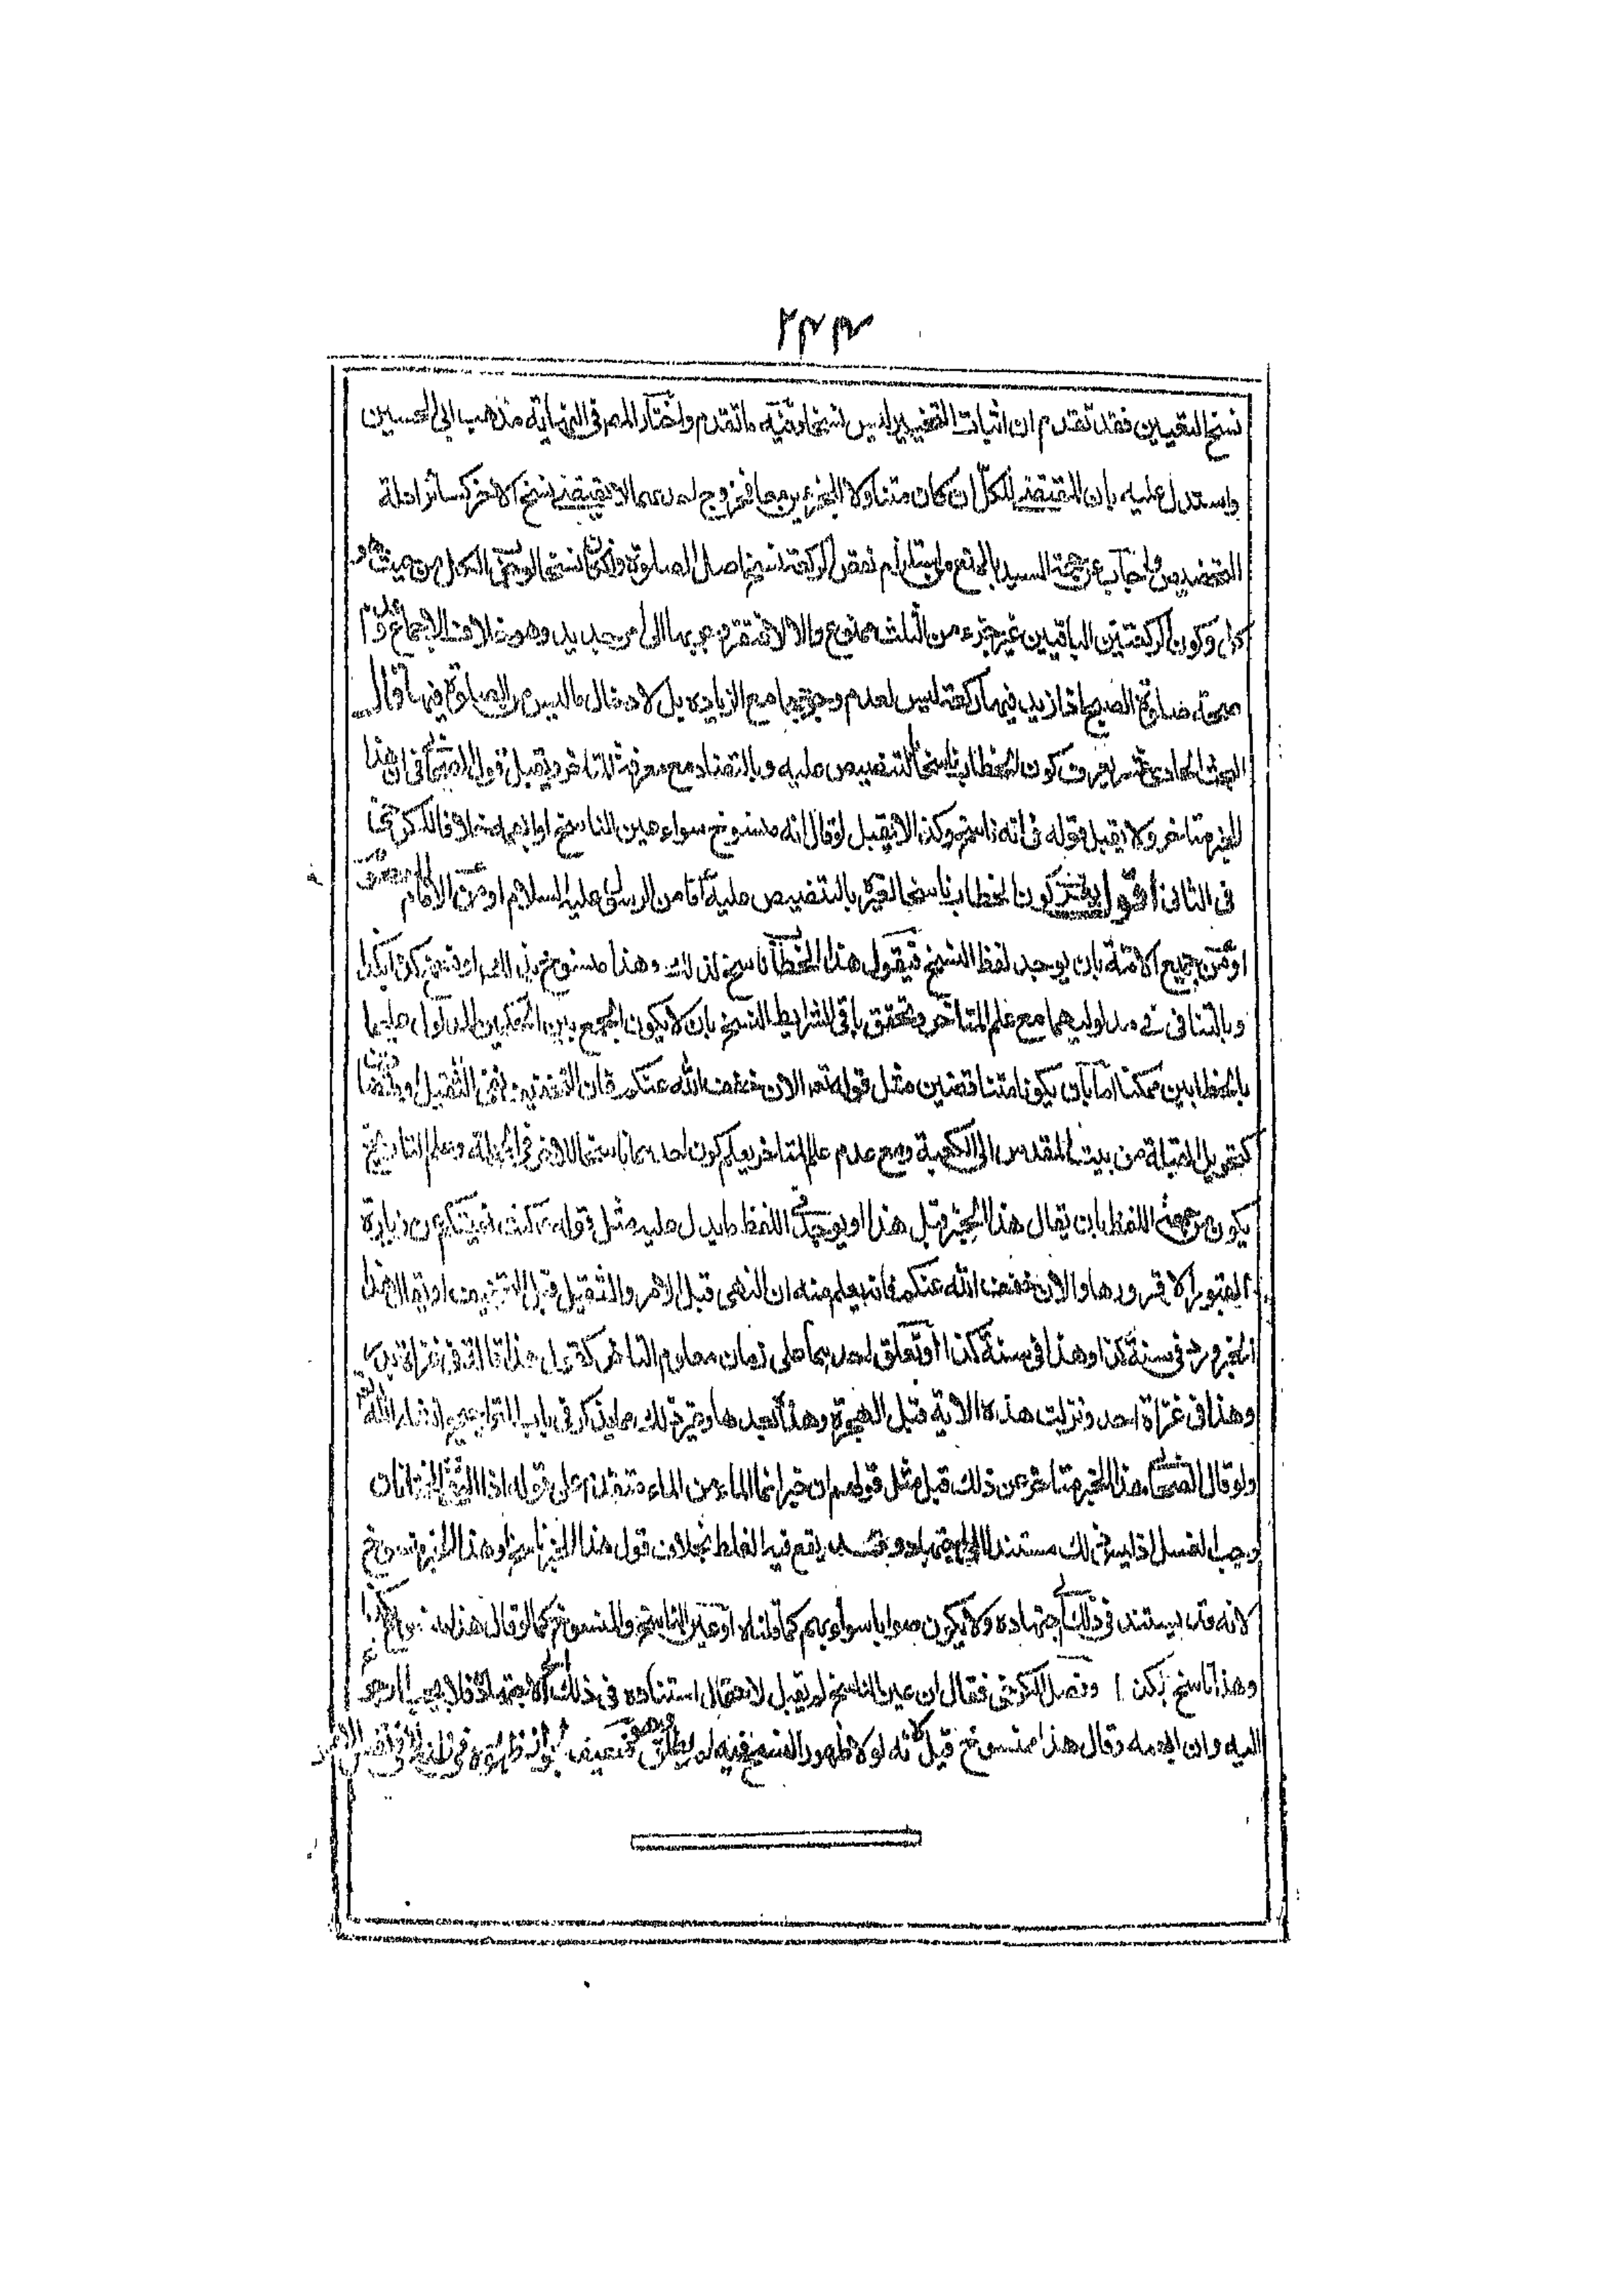 ٢٣٣
نسخ التعيين فقد تقدم ان اثبات التخيير ليس نسخا وفيه ما تقدم واختار المصر في النهاية مذهب ابي الحسين
واستدل عليه بان المقتضى للكل ان كان متناولا للجزءين معا فخروج احدهما لا يقتضى نسخ الاخر كسائر ادلة
التخصيص واجاب عن حجة السيد بالمنع من استلزام نقص الركعة نسخ اصل الصلوة وانما كان نسخا لوجوب الكل من حيث هو
كل وكون الركعتين الباقيتين غير جزء من الثلث ممنوع والا لافتقر وجوبهما الى امر جديد وهو خلاف الاجماع وعدم
صحة صلوة الصبح اذا زيد فيها ركعة ليس لعدم وجوبها مع الزيادة بل لادخال ما ليس من الصلوة فيها قال
البحث الحادى عشر يعرف كون الخطاب ناسخا بالتنصيص عليه وبالتضاد مع معرفة المتاخر ويقبل قول الصحابى فى ان هذا
الخبر متاخر ولا يقبل قوله فى انه ناسخ وكذا لا يقبل لو قال انه منسوخ سواء عين الناسخ او ابهمه خلافا للكرخى
فى الثانى اقول يعرف كون الخطاب ناسخا لغيره بالتنصيص عليه اما من الرسول عليه السلام او من الامام
او من جميع الامة بان يوجد لفظ النسخ فيقول هذا الخطاب ناسخ لذلك وهذا منسوخ بذلك او نسخ كذا بكذا
وبالتنافى فى مدلوليهما مع علم المتاخر وتحقق باقى الشرايط النسخ بان لا يكون الجمع بين الحكمين المدلول عليهما
بالخطابين ممكنا اما بان يكونا متناقضين مثل قوله تعه الان خفف الله عنكم فان التخفيف نفى الثقيل او
كتحويل القبلة من بيت المقدس الى الكعبة ومع عدم علم المتاخر يعلم كون احدهما ناسخا للاخر فى الجملة وعلم التاريخ
يكون من جهة اللفظ بان يقال هذا الخبر قبل هذا او يوجد فى اللفظ ما يدل عليه مثل قوله ع كنت نهيتكم عن زيارة
القبور الا فزوروها والان خفف الله عنكم فانه يعلم منه ان النهى قبل الامر والثقيل قبل التخفيف او يقال هذا
الخبر ورد فى سنة كذا وهذا فى سنة كذا او تعلق احدهما على زمان معلوم التاخر كقوله هذا قاله فى غزاة بدر
وهذا فى غزاة احد ونزلت هذه الاية قبل الهجرة وهذه بعدها وغير ذلك مما يذكر فى باب التراجيح انشاء الله
ولو قال الصحابى هذا الخبر متاخر عن ذلك قبل مثل قولهم ان خبر انما الماء من الماء متقدم على قوله اذا التقى الختانان
وجب الغسل اذ ليس ذلك مستندا الى اجتهاد يقع فيه الغلط بخلاف قول هذا الخبر ناسخ وهذا الخبر منسوخ
لانه قد يستند فى ذلك الى اجتهاده ولا يكون صوابا سواء ابهم كما قلناه او عين الناسخ والمنسوخ كما لو قال هذا منسوخ بكذا
وهذا ناسخ لكذا وفصل الكرخى فقال ان عين الناسخ لم يقبل لاحتمال استناده فى ذلك الى الاجتهاد فلا يجب الرجوع
اليه وان ابهمه وقال هذا منسوخ قبل لانه لولا ظهور النسخ فيه لم يطلق وهو ضعيف لجواز ظهوره فى ظنه لا فى نفس الامر